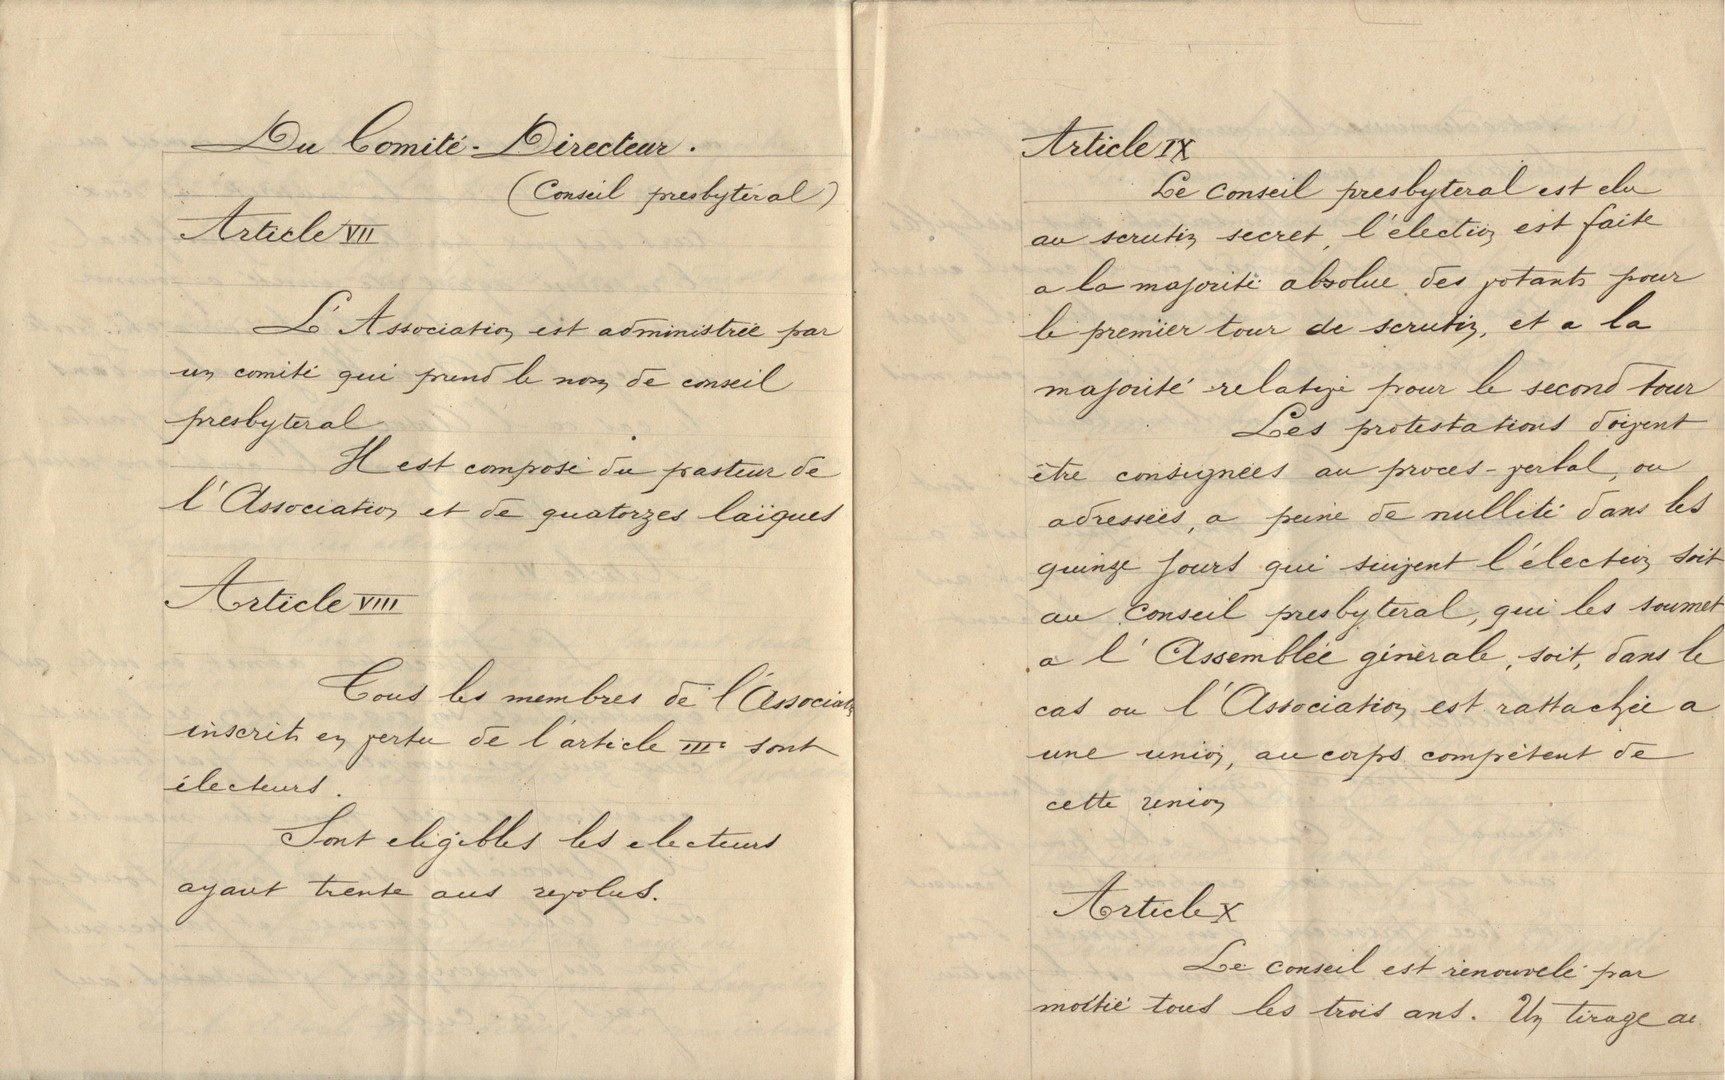 Du Comité-Directeur.
(Conseil presbytéral)
Article VII
L'Association est administrée par
un comité qui prend le nom de conseil
presbyteral
Il est composé du pasteur de
l'Association et de quatorzes laïques
Article VIII
Tous les membres de l'Associat
inscrits en vertu de l'article III sont
électeurs.
Sont eligibles les electeurs
ayant trente ans revolus.
Article IX
Le conseil presbyteral est elu
au scrutin secret, l'élection est faite
a la majorité absolue des votants pour
le premier tour de scrutin, et a la
majorité relative pour le second tour
Les protestations doivent
être consignées au proces-verbal, ou
adressées, a peine de nullité dans les
quinze jours qui suivent l'élection soit
au conseil presbyteral, qui les soumet
a l'Assemblée générale, soit, dans le
cas ou l'Association est rattachée a
une union, au corps compétent de
cette union
Article X
Le conseil est renouvelé par
moitié tous les trois ans. Un tirage au